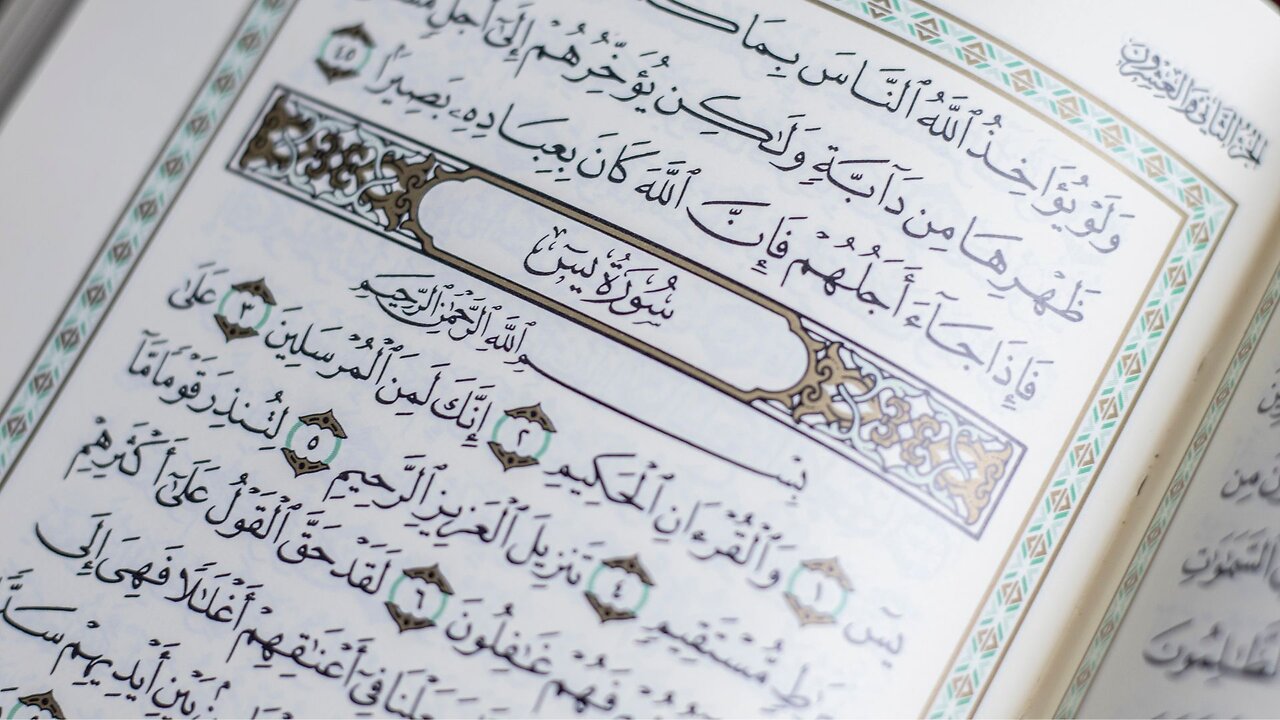 الجزء الثاني والعشرون
وَلَوْ يُؤَاخِذُ ٱللَّهُ ٱلنَّاسَ بِمَا
ظَهْرِهَا مِن دَآبَّةٍ وَلَٰكِن يُؤَخِّرُهُمْ إِلَىٰٓ أَجَلٍ
فَإِذَا جَآءَ أَجَلُهُمْ فَإِنَّ ٱللَّهَ كَانَ بِعِبَادِهِۦ بَصِيرًۢا ٤٥
سُورَةُ يسٓ
بِسْمِ ٱللَّهِ ٱلرَّحْمَٰنِ ٱلرَّحِيمِ
يسٓ ١ وَٱلْقُرْءَانِ ٱلْحَكِيمِ ٢ إِنَّكَ لَمِنَ ٱلْمُرْسَلِينَ ٣ عَلَىٰ
مُّسْتَقِيمٍ ٤ تَنزِيلَ ٱلْعَزِيزِ ٱلرَّحِيمِ ٥ لِتُنذِرَ قَوْمًا مَّآ
فَهُمْ غَٰفِلُونَ ٦ لَقَدْ حَقَّ ٱلْقَوْلُ عَلَىٰٓ أَكْثَرِهِمْ
فِىٓ أَعْنَٰقِهِمْ أَغْلَٰلًا فَهِىَ إِلَى
بَيْنِ أَيْدِيهِمْ سَدًّا
مِن